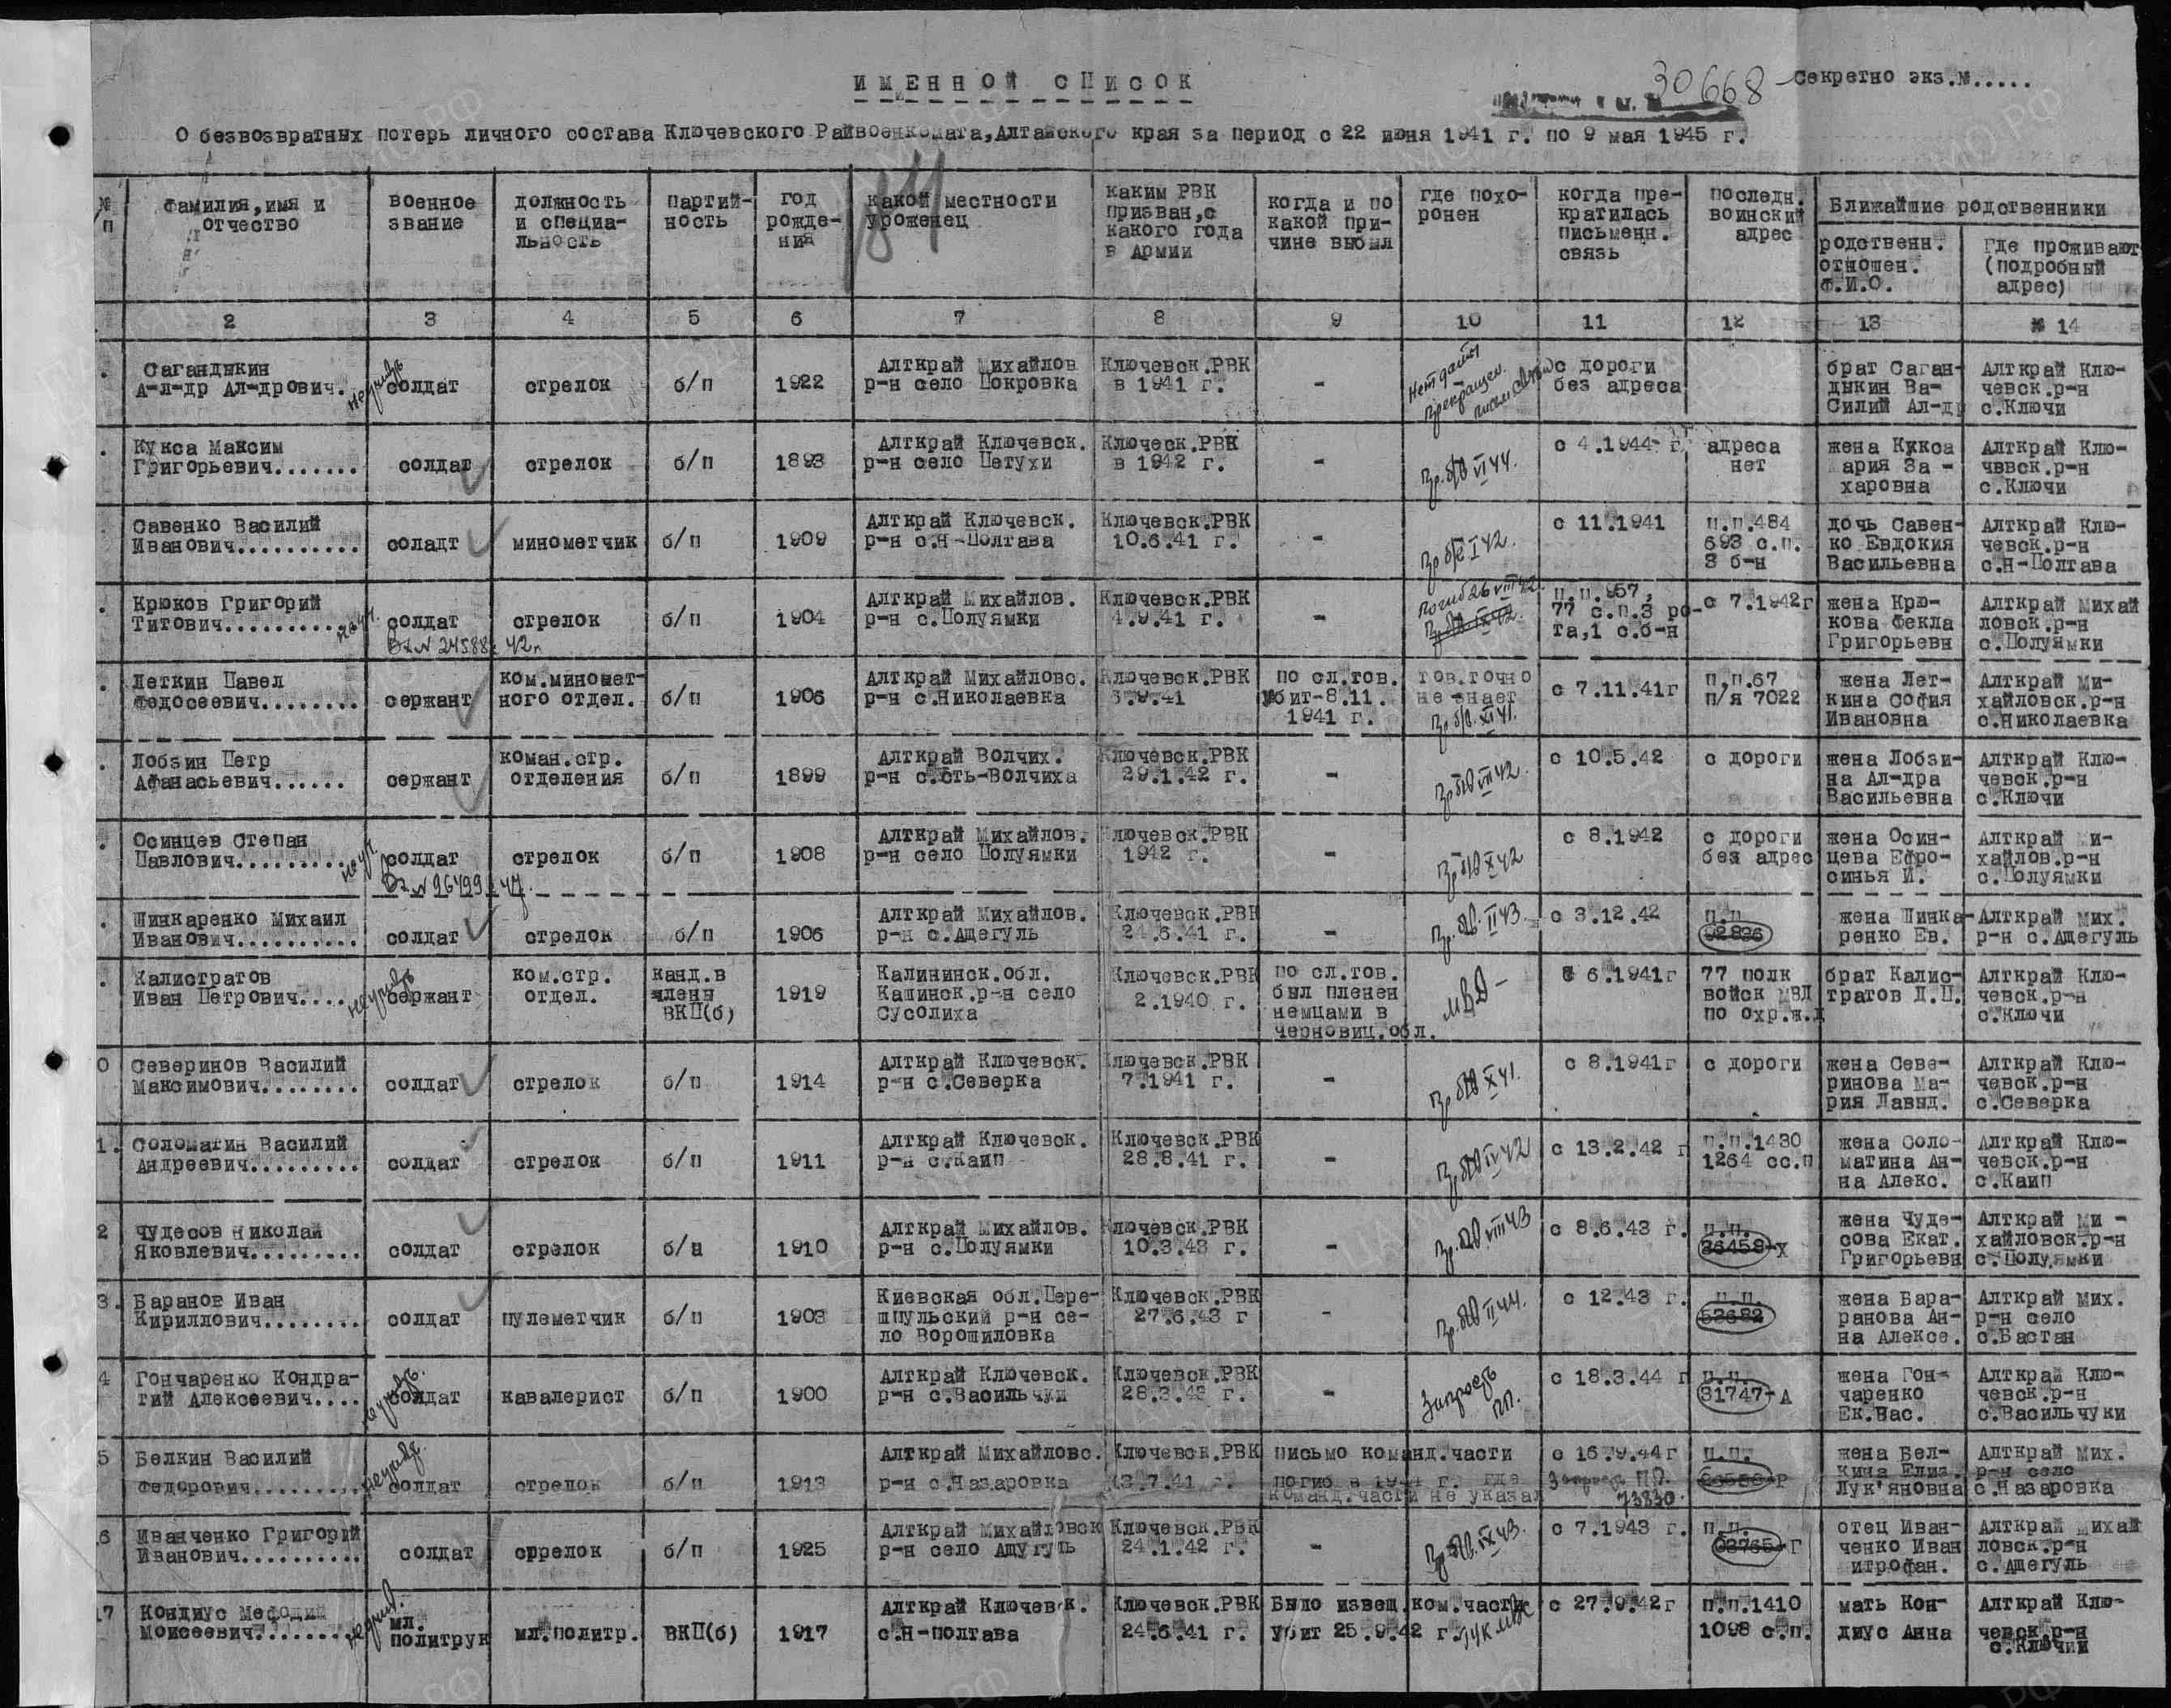 ИМЕННОЙ СПИСОК
30668
Секретно экз.№.....
О безвозвратных потерь личного состава Ключевского Райвоенкомата,Алтайского края за период с 22 июня 1941 г. по 9 мая 1945 г.
№ п | фамилия,имя и отчество | военное звание | должность и специальность | партий-ность | год рожде-ния | какой местности уроженец | каким РВК призван,с какого года в Армии | когда и по какой при-чине выбыл | где похо-ронен | когда пре-кратилась письменн. связь | последн. воинский адрес | Ближайшие родственники
родственн. отношен. Ф.И.О. | Где проживают (подробный адрес)
2 3 4 5 6 7 8 9 10 11 12 13 14
Сагандыкин А-л-др Ал-дрович. | солдат | стрелок | б/п | 1922 | Алткрай Михайлов р-н село Покровка | Ключевск.РВК в 1941 г. | - | с дороги без адреса | брат Саган-дыкин Ва-Силий Ал-др | Алткрай Клю-чевск.р-н с.Ключи
Кукса Максим Григорьевич....... | солдат | стрелок | б/п | 1893 | Алткрай Ключевск. р-н село Петухи | Ключеск.РВК в 1942 г. | - | Пр.б/в VI 44. | с 4.1944 г. | адреса нет | жена Кукса ария За - харовна | Алткрай Клю-чввск.р-н с.Ключи
Савенко Василий Иванович.......... | соладт | минометчик | б/п | 1909 | Алткрай Ключевск. р-н с.Н-Полтава | Ключевск.РВК 10.6.41 г. | - | Пр б/в I 42. | с 11.1941 | п.п.484 693 с.п. 3 б-н | дочь Савен-ко Евдокия Васильевна | Алткрай Клю-чевск.р-н с.Н-Полтава
Крюков Григорий Титович.......... | солдат | стрелок | б/п | 1904 | Алткрай Михайлов. р-н с.Полуямки | Ключевск.РВК 4.9.41 г. | - | погиб 26 VIII 42. | п.п.957, 77 с.п.3 ро-та,1 с.б-н | с 7.1942г | жена Крю-кова Фекла Григорьевн | Алткрай Михай ловск.р-н с.Полуямки
Вх N 24588с 42г
Леткин Павел Федосеевич........ | сержант | ком.миномет-ного отдел. | б/п | 1906 | Алткрай Михайловс. р-н с.Николаевка | Ключевск.РВК 3.9.41 | по сл.тов. убит-8.11. 1941 г. | тов.точно не знает Пр б/в. XI 41. | с 7.11.41г | п.п.67 п/я 7022 | жена Лет-кина София Ивановна | Алткрай Ми-хайловск.р-н с.Николаевка
Лобзин Петр Афанасьевич...... | сержант | коман.стр. отделения | б/п | 1899 | Алткрай Волчих. р-н с.сть-Волчиха | Ключевск.РВК 29.1.42 г. | - | Пр б/в VII 42. | с 10.5.42 | с дороги | жена Лобзи-на Ал-дра Васильевна | Алткрай Клю-чевск.р-н с.Ключи
Осинцев Степан Павлович.......... | солдат | стрелок | б/п | 1908 | Алткрай Михайлов. р-н село Полуямки | Ключевск.РВК 1942 г. | - | Пр б/в X 42 | с 8.1942 | с дороги без адрес | жена Осин-цева Ефро-синья И. | Алткрай и-хайлов.р-н с.Полуямки
Шинкаренко Михаил Иванович.......... | солдат | стрелок | б/п | 1906 | Алткрай Михайлов. р-н с.Ащегуль | Ключевск.РВК 24.6.41 г. | - | Пр. б/в. II 43. | с 3.12.42 | п.п. 92836 | жена Шинка-ренко Ев. | Алткрай Мих. р-н с.Ащегуль
Калистратов Иван Петрович.... | сержант | ком.стр. отдел. | канд.в члены ВКП(б) | 1919 | Калининск.обл. Кашинск.р-н село Сусолиха | Ключевск.РВК 2.1940 г. | по сл.тов. был пленен немцами в черновиц.обл. | МВД- | 6.1941г | 77 полк войск МВД по охр.ж.д | брат Калис-тратов Д.П. | Алткрай Клю-чевск.р-н с.Ключи
0 Северинов Василий Максимович........ | солдат | стрелок | б/п | 1914 | Алткрай Ключевск. р-н с.Северка | Ключевск.РВК 7.1941 г. | - | Пр б/в X 41. | с 8.1941г | с дороги | жена Севе-ринова Ма-рия Давыд. | Алткрай Клю-чевск.р-н с.Северка
1. Соломатин Василий Андреевич......... | солдат | стрелок | б/п | 1911 | Алткрай Ключевск. р-н с.Каип | Ключевск.РВК 28.8.41 г. | - | Пр б/в IV 42 | с 13.2.42 г | п.п.1430 1264 сс.п | жена Соло-матина Ан-на Алекс. | Алткрай Клю-чевск.р-н с.Каип
2 Чудесов Николай Яковлевич......... | солдат | стрелок | б/п | 1910 | Алткрай Михайлов. р-н с.Полуямки | Ключевск.РВК 10.3.43 г. | - | Пр. б/в VIII 43 | с 8.6.43 г. | п.п. 36458-Х | жена Чуде-сова Екат. Григорьевн | Алткрай Ми - хайловск.р-н с.Полуямки
3. Баранов Иван Кириллович........ | солдат | пулеметчик | б/п | 1903 | Киевская обл.Пере-шпульский р-н се-ло Ворошиловка | Ключевск.РВК 27.6.43 г | - | Пр. б/в II 44. | с 12.43 г. | п.п. 53682 | жена Бара-ранова Ан-на Алексе. | Алткрай Мих. р-н село с.Бастан
4 Гончаренко Кондра-тий Алексеевич.... | солдат | кавалерист | б/п | 1900 | Алткрай Ключевск. р-н с.Васильчуки | Ключевск.РВК 28.3.43 г. | - | Запрос ПП. | с 18.3.44 г | п.п. 31747-А | жена Гон-чаренко Ек.Вас. | Алткрай Клю-чевск.р-н с.Васильчуки
5 Белкин Василий Федорович......... | солдат | стрелок | б/п | 1913 | Алткрай Михайловс. р-н с.Назаровка | Ключевск.РВК 13.7.41 г. | письмо команд.части погиб в 1944 г. где команд.части не указал | с 16.9.44г 73830. | п.п. | жена Бел-кина Елиз. Лук'яновна | Алткрай Мих. р-н село с.Назаровка
6 Иванченко Григорий Иванович.......... | солдат | сррелок | б/п | 1925 | Алткрай Михайловск р-н село Ащугуль | Ключевск.РВК 24.1.42 г. | - | Пр б/в. IX 43. | с 7.1943 г. | п.п. 03765-Г | отец Иван-ченко Иван итрофан. | Алткрай Михай ловск.р-н с.Ащегуль
17 Кондиус Мефодий Моисеевич........ | мл. политрук | мл.политр. | ВКП(б) | 1917 | Алткрай Ключевск. с.Н-полтава | Ключевск.РВК 24.6.41 г. | Было извещ.ком.части убит 25.9.42 г. | с 27.9.42г | п.п.1410 1098 с.п. | мать Кон-диус Анна | Алткрай Клю-чевск.р-н с.Ключии